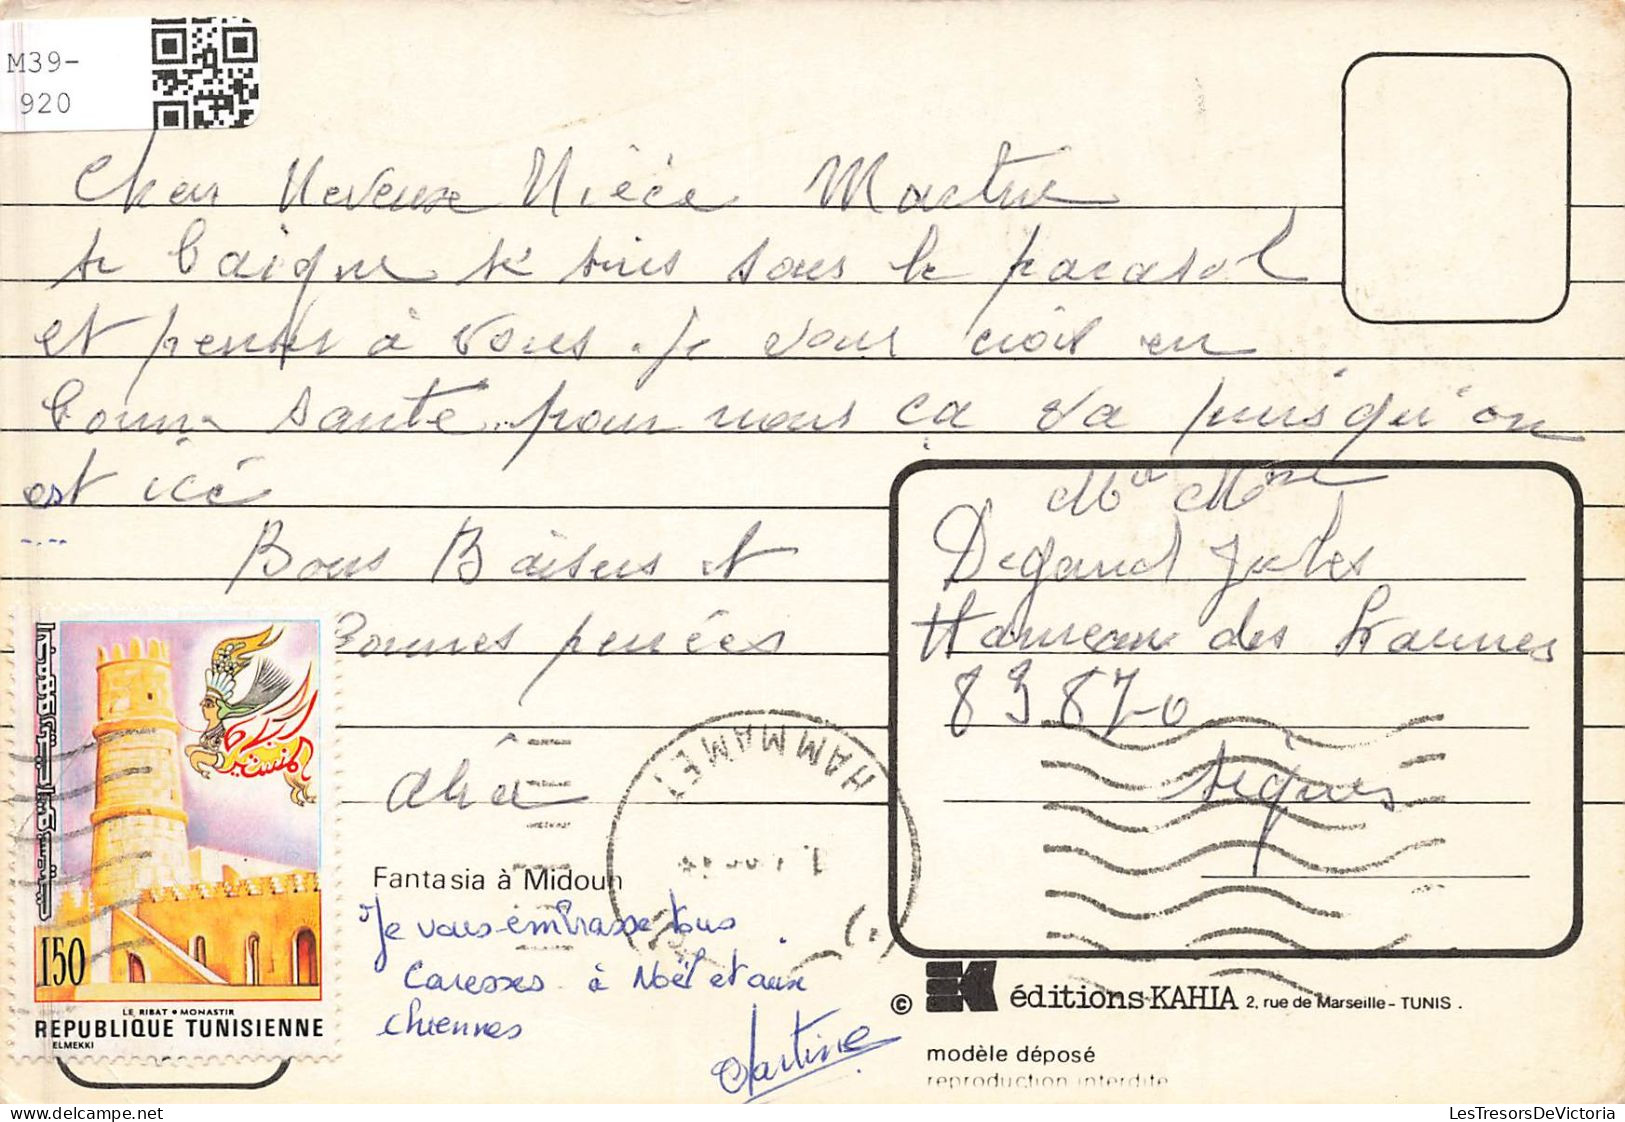 M39-
920
Cher Neveux Nièce Martine
se baigne tk suis sous le parasol
et penser à vous. Je vous crois en
bonne santé pour nous ça va puisqu'on
est icé
Bons Baisers et
Bonnes pensées
M' Mme
Degand Jules
Hameau des
83870
signes
HAMMAMET
Fantasia à Midoun
Je vous embrasse tous
Caresses à Noël et aux
chiennes
Martine
150
LE RIBAT • MONASTIR
REPUBLIQUE TUNISIENNE
ELMEKKI
© éditions KAHIA 2, rue de Marseille - TUNIS .
modèle déposé
reproduction interdite
LesTresorsDeVictoria